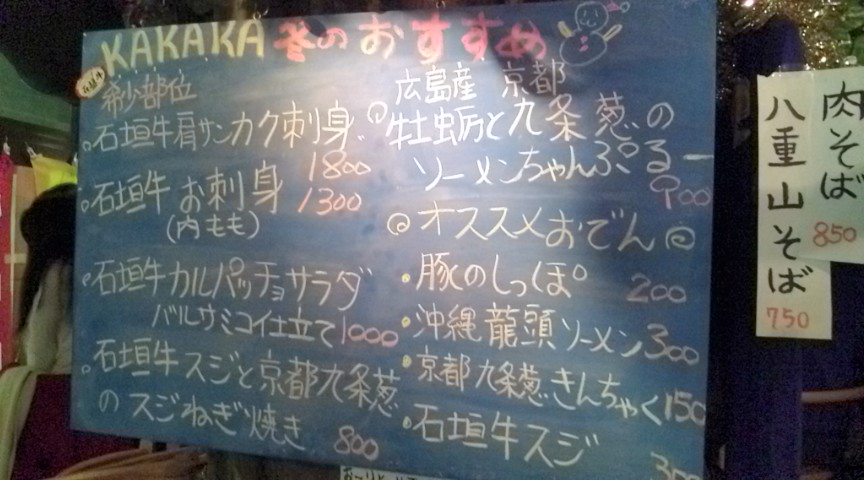 KAKAKA 冬のおすすめ
石垣牛
希少部位
石垣牛肩サンカク刺身
1800
石垣牛 お刺身 1300
(内もも)
石垣牛カルパッチョサラダ
バルサミコ仕立て 1000
石垣牛スジと京都九条葱
のスジねぎ焼き
800
広島産 京都
牡蛎と九条葱の
ソーメンちゃんぷるー
900
オススメおでん
豚のしっぽ 200
沖縄龍頭ソーメン 300
京都九条葱きんちゃく 150
石垣牛スジ
300
八重山そば
750
肉そば
850